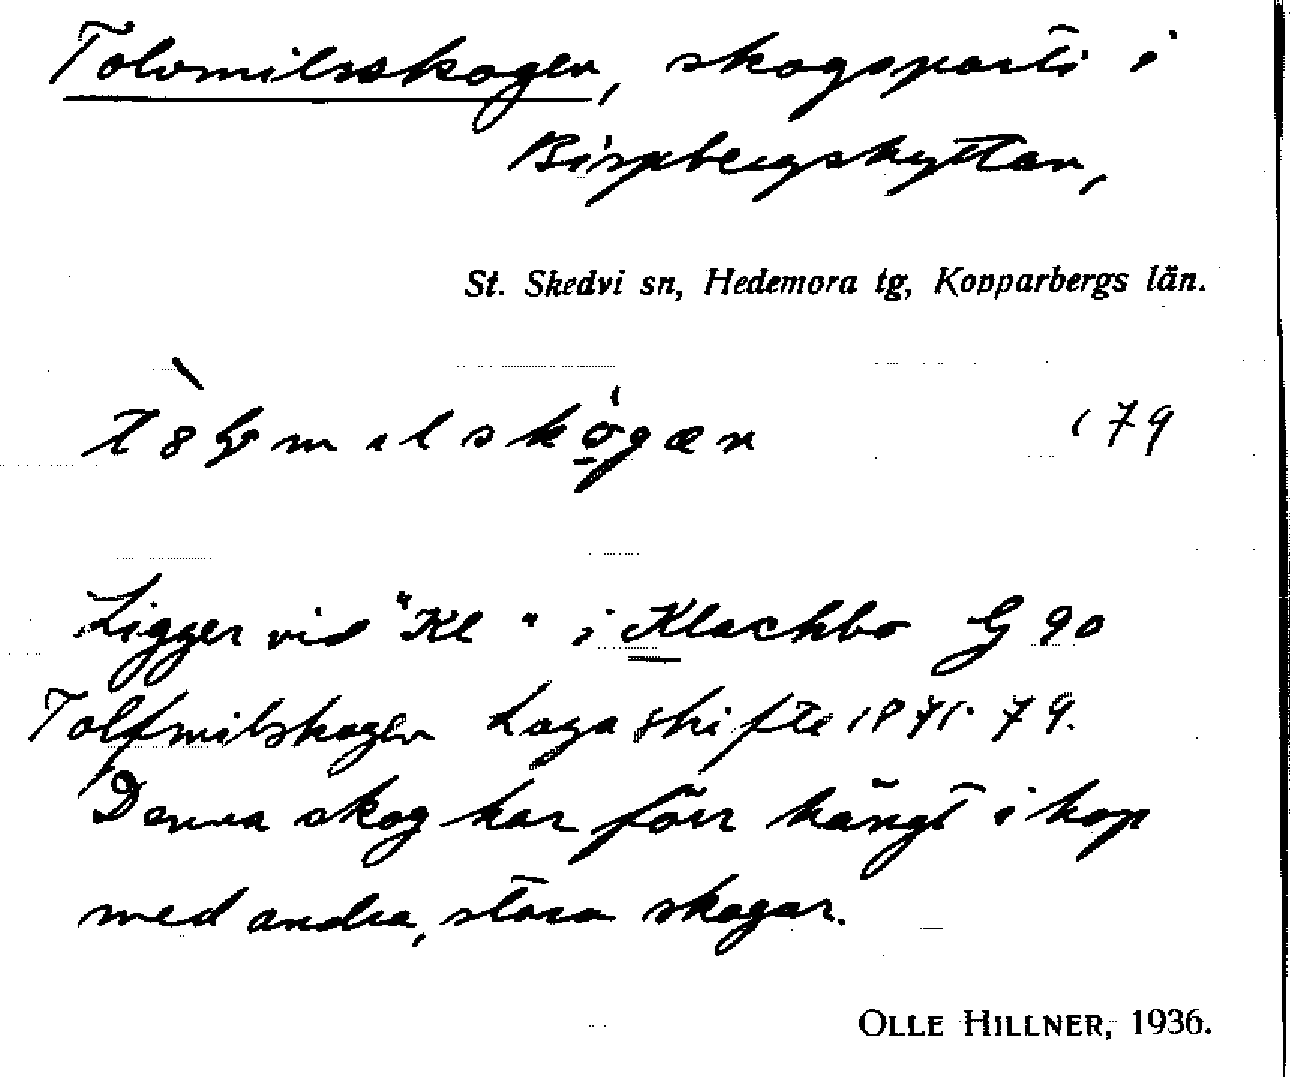 Tolvmilsskogen, skogsparti i
Bispbergshyttan,
St. Skedvi sn, Hedemora tg, Kopparbergs län.
179
Ligger vid "Kl" i Klackbo G 90
Tolfmilskogen Laga skifte 1871-79.
Denna skog har förr hängt i hop
med andra, stora skogar.
OLLE HILLNER, 1936.